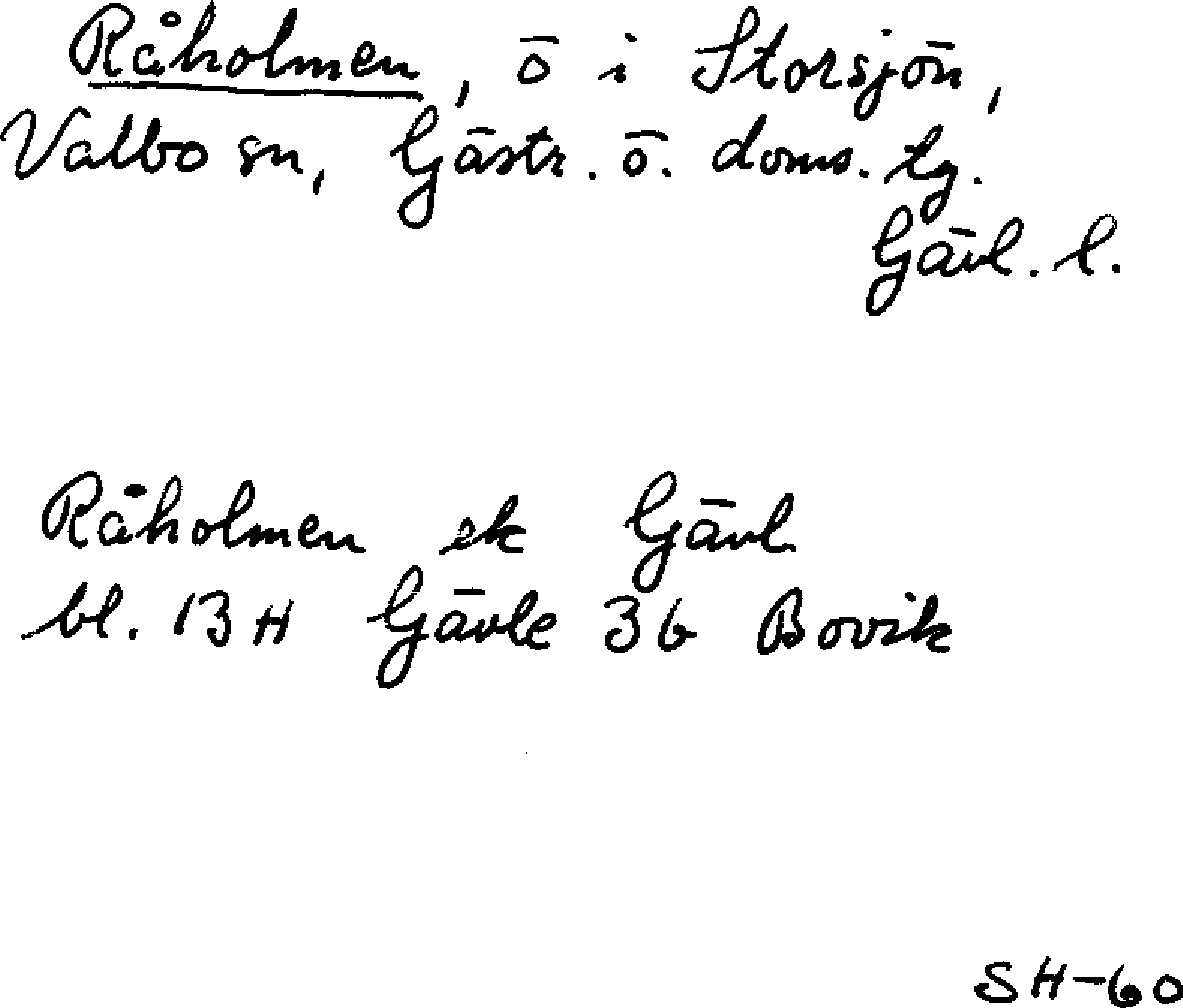 Råholmen, ö i Storsjön,
Valbo sn, Gästr. ö. doms. tg.
Gävl. l.
Råholmen ek Gävl.
bl. 13H Gävle 3b Bovik
SH-60